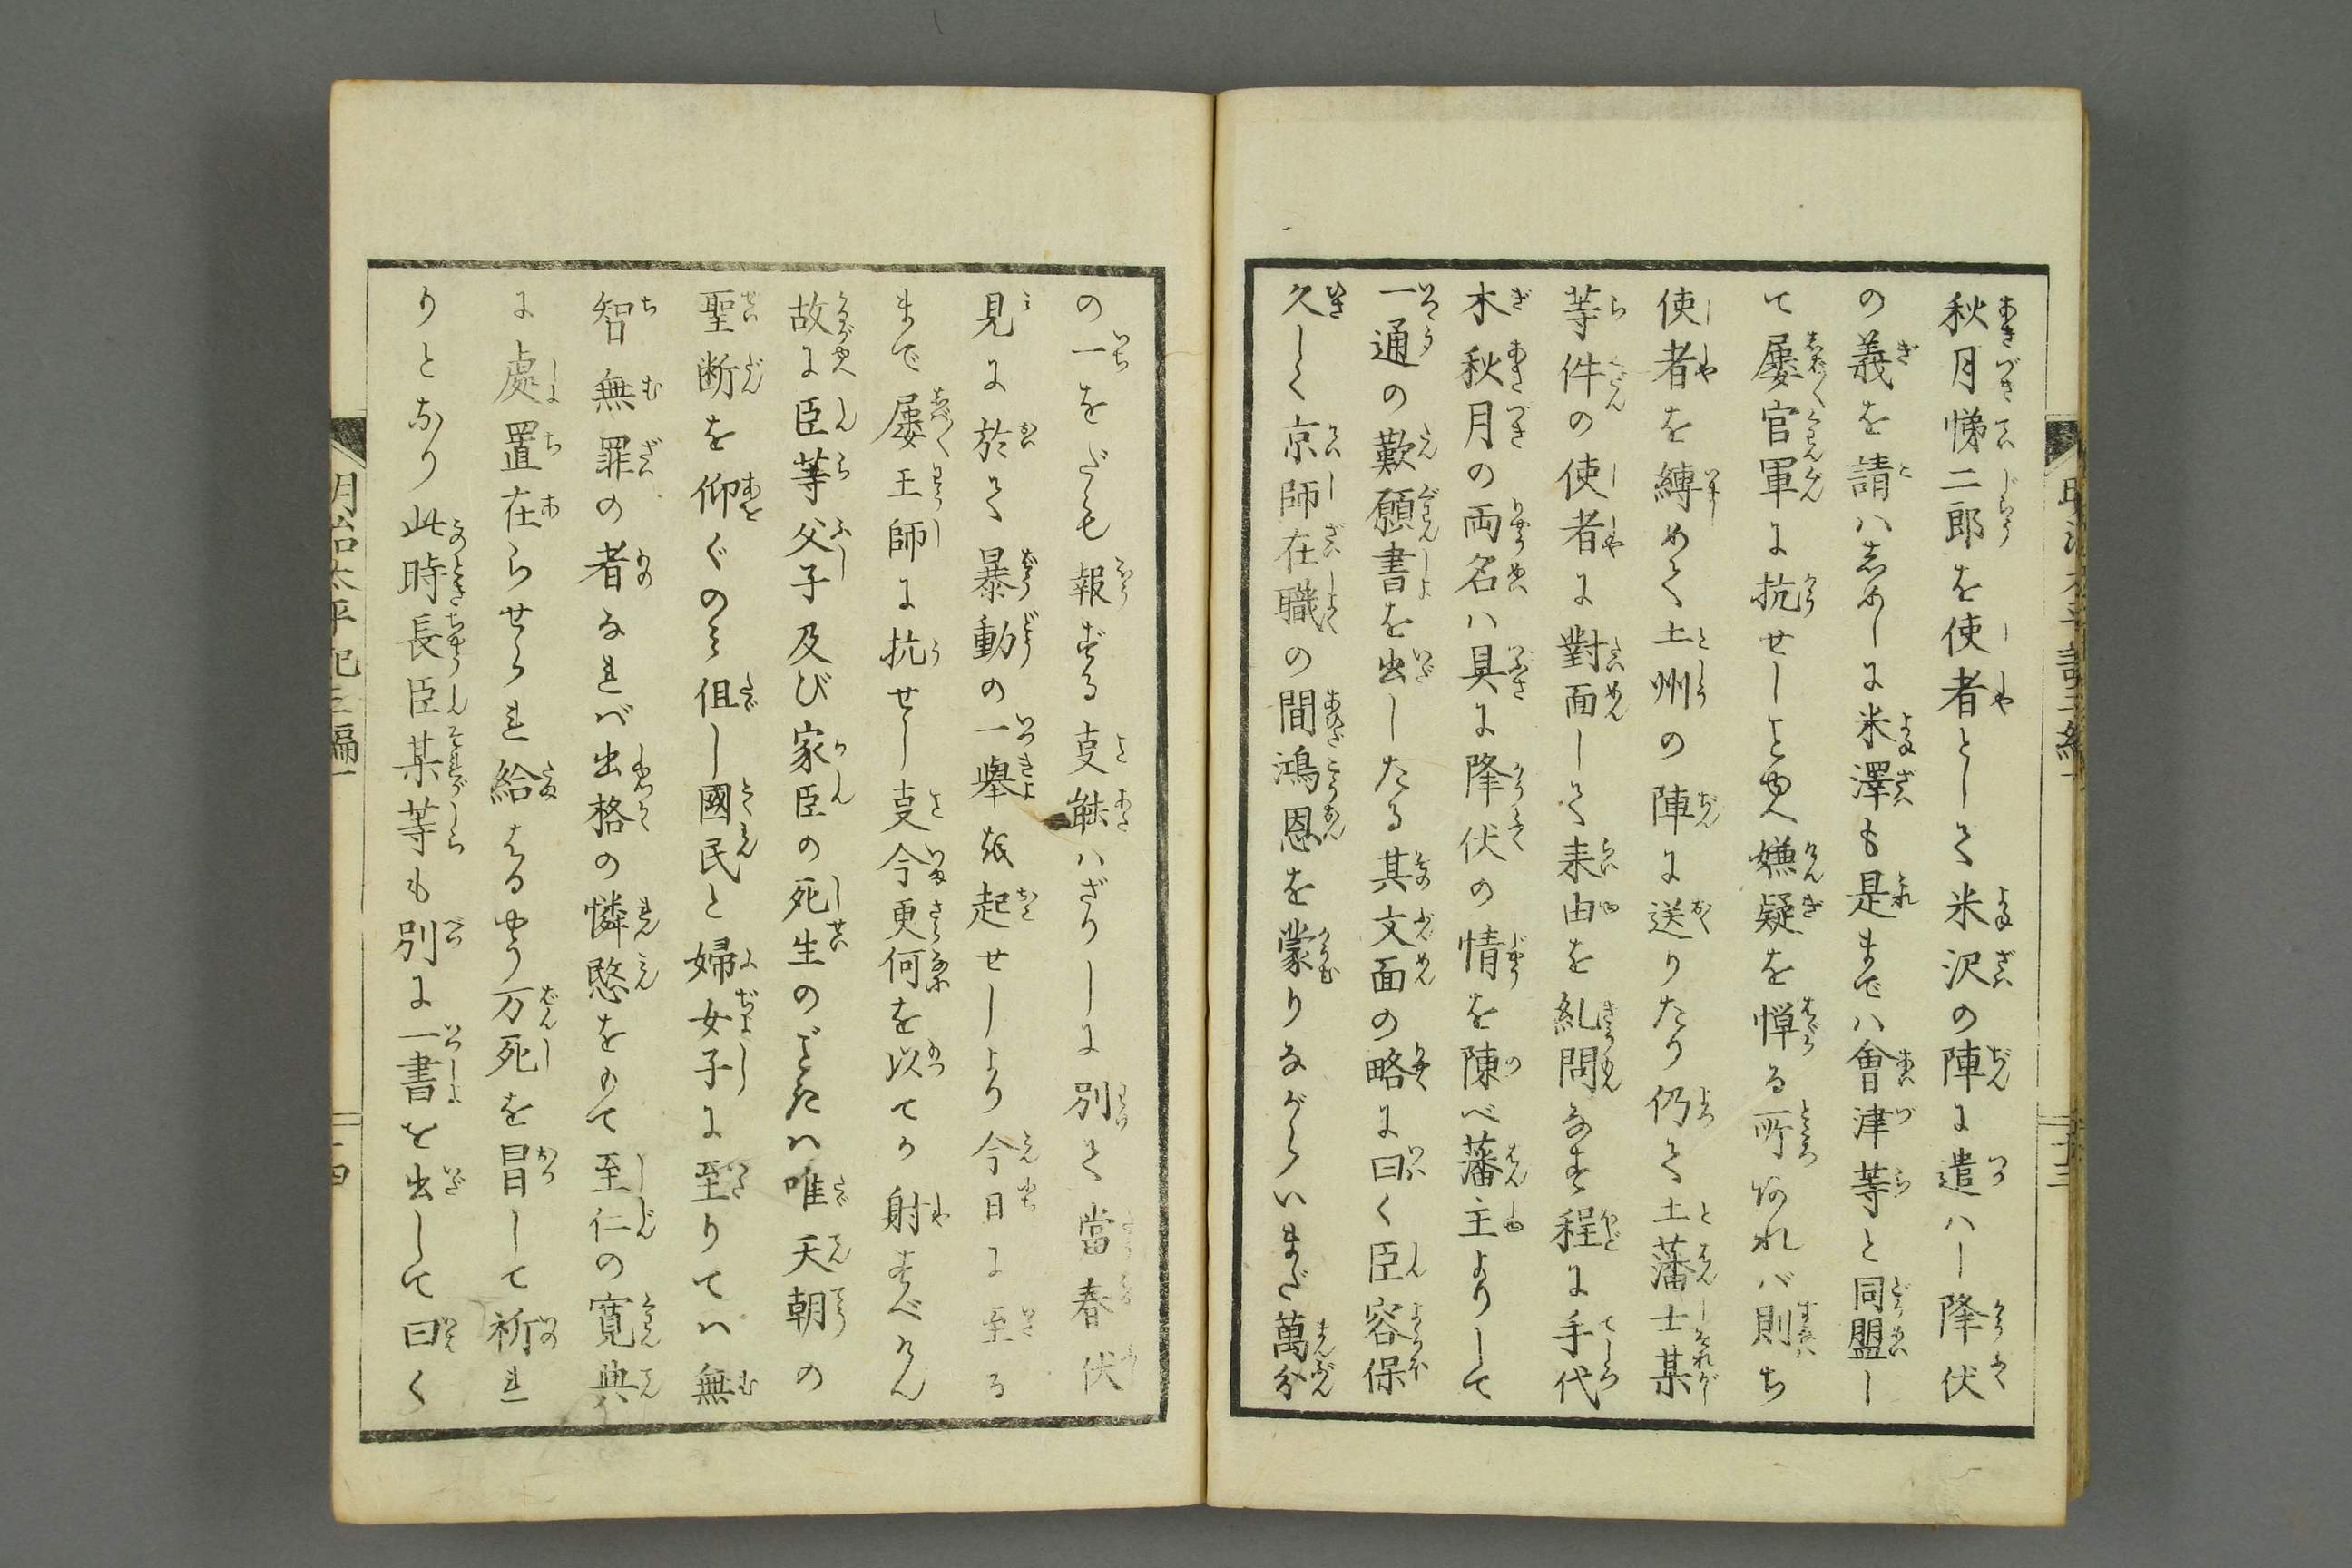 秋月悌二郎を使者として米沢の陣に遣ハし降伏
の義を請ハしめしに米澤も是までハ會津等と同盟し
て屡官軍に抗せしとゆゑ嫌疑を憚る所あれバ則ち
使者を縛めて土州の陣に送りたり仍て土藩士某
等件の使者に對面して来由を糺問なす程に手代
木秋月の両名ハ具に降伏の情を陳べ藩主よりして
一通の歎願書を出したる其文面の略に曰く臣容保
久しく京師在職の間鴻恩を蒙りながらいまだ萬分
の一をだも報ずる事能ハざりしに別て當春伏
見に於て暴動の一舉を起せしより今日に至る
まで屡王師に抗せし事今更何を以てか謝すべけん
故に臣等父子及び家臣の死生のごときハ唯天朝の
聖断を仰ぐのみ但し國民と婦女子に至りてハ無
智無罪の者なれバ出格の憐愍をもて至仁の寛典
に處置在らせられ給はるやう万死を冒して祈れ
りとなり此時長臣某等も別に一書を出して曰く
明治太平記三編一